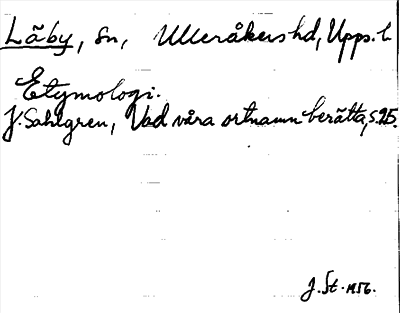 Läby, sn, Ulleråkers hd, Upps. l.
Etymologi.
J. Sahlgren, Vad våra ortnamn berätta, s. 25.
J. St. 1956.